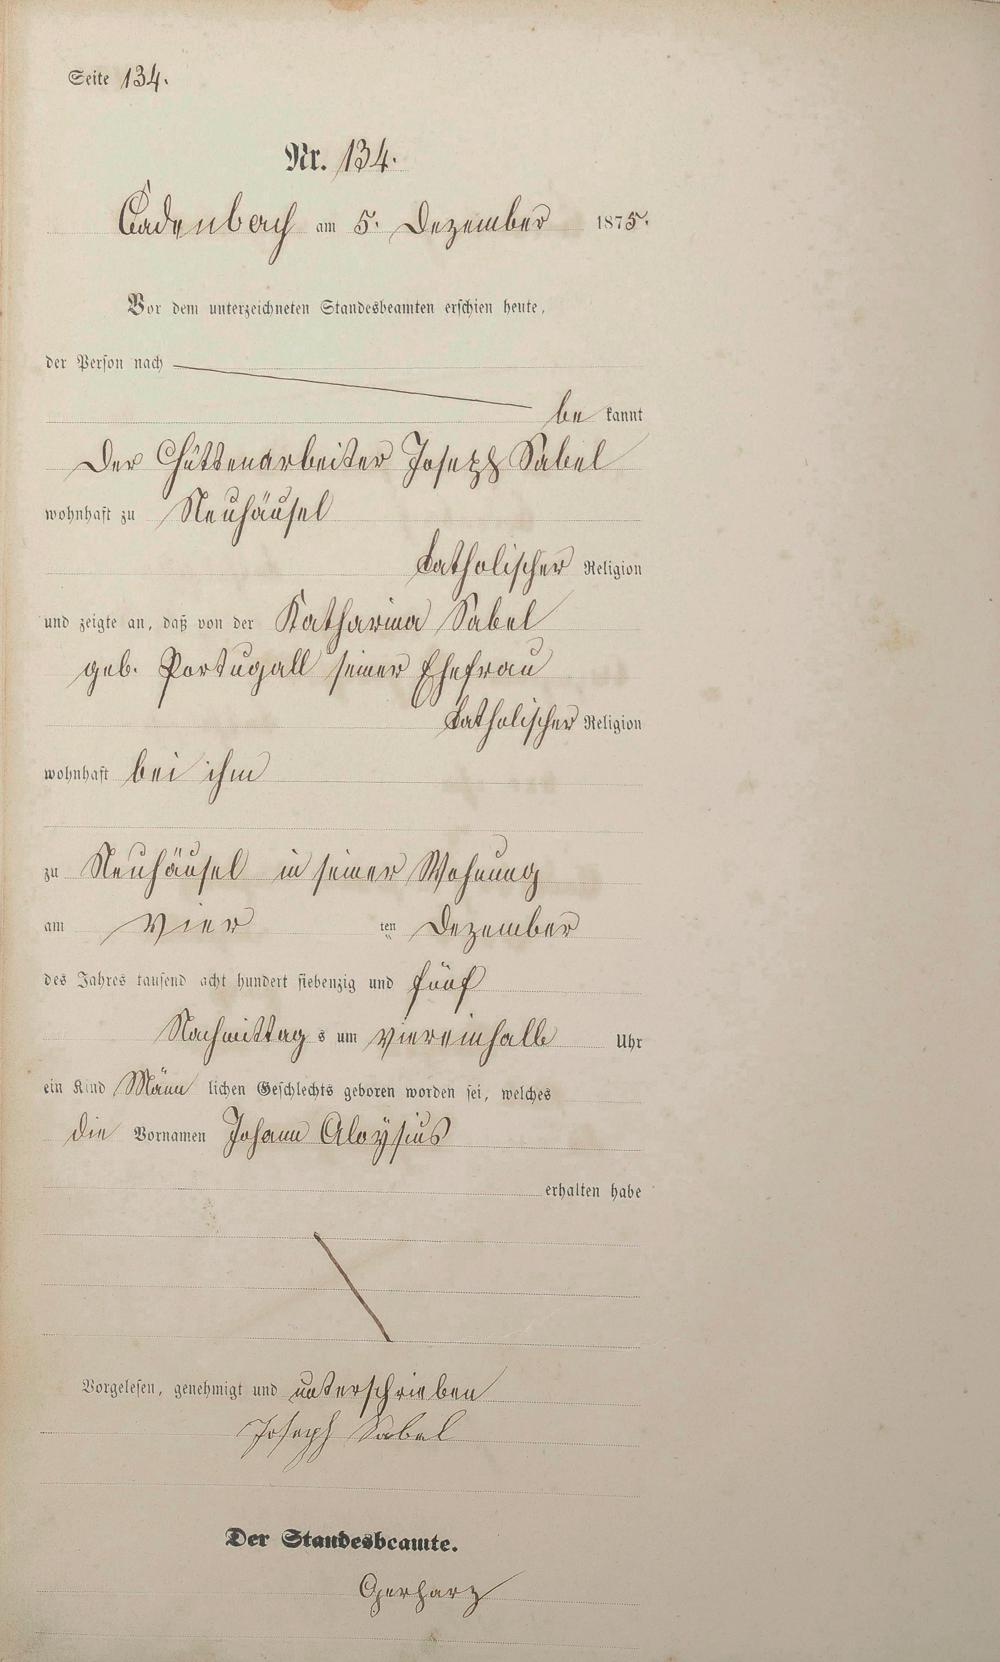 Seite 134.
Nr. 134.
Cadenbach am 5. Dezember 1875.
Vor dem unterzeichneten Standesbeamten erschien heute,
der Person nach
be kannt
Der Hüttenarbeiter Joseph Sabel
wohnhaft zu Neuhäusel
katholischer Religion
und zeigte an, daß von der Katharina Sabel
geb. Portugall seiner Ehefrau
katholischer Religion
wohnhaft bei ihm
zu Neuhäusel in seiner Wohnung
am vier ten Dezember
des Jahres tausend acht hundert siebenzig und fünf
Nachmittag s um viereinhalb Uhr
ein Kind Männ lichen Geschlechts geboren worden sei, welches
die Vornamen Johann Aloÿsius
erhalten habe
Vorgelesen, genehmigt und unterschrieben
Joseph Sabel
Der Standesbeamte.
Gerharz